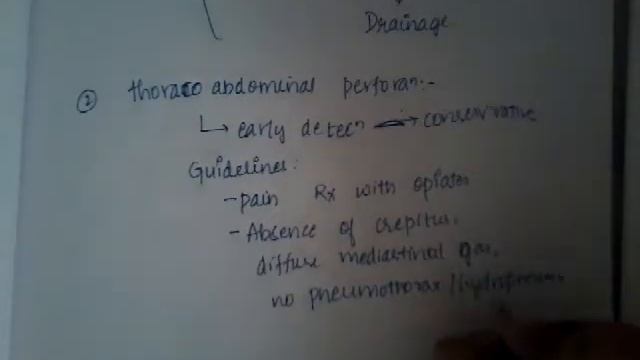 Drainage
② thoraco abdominal perforan:-
↳ early detecn → conservative
Guidelines:
- pain Rx with opiates
- Absence of crepitus,
diffuse mediastinal gas,
no pneumothorax /